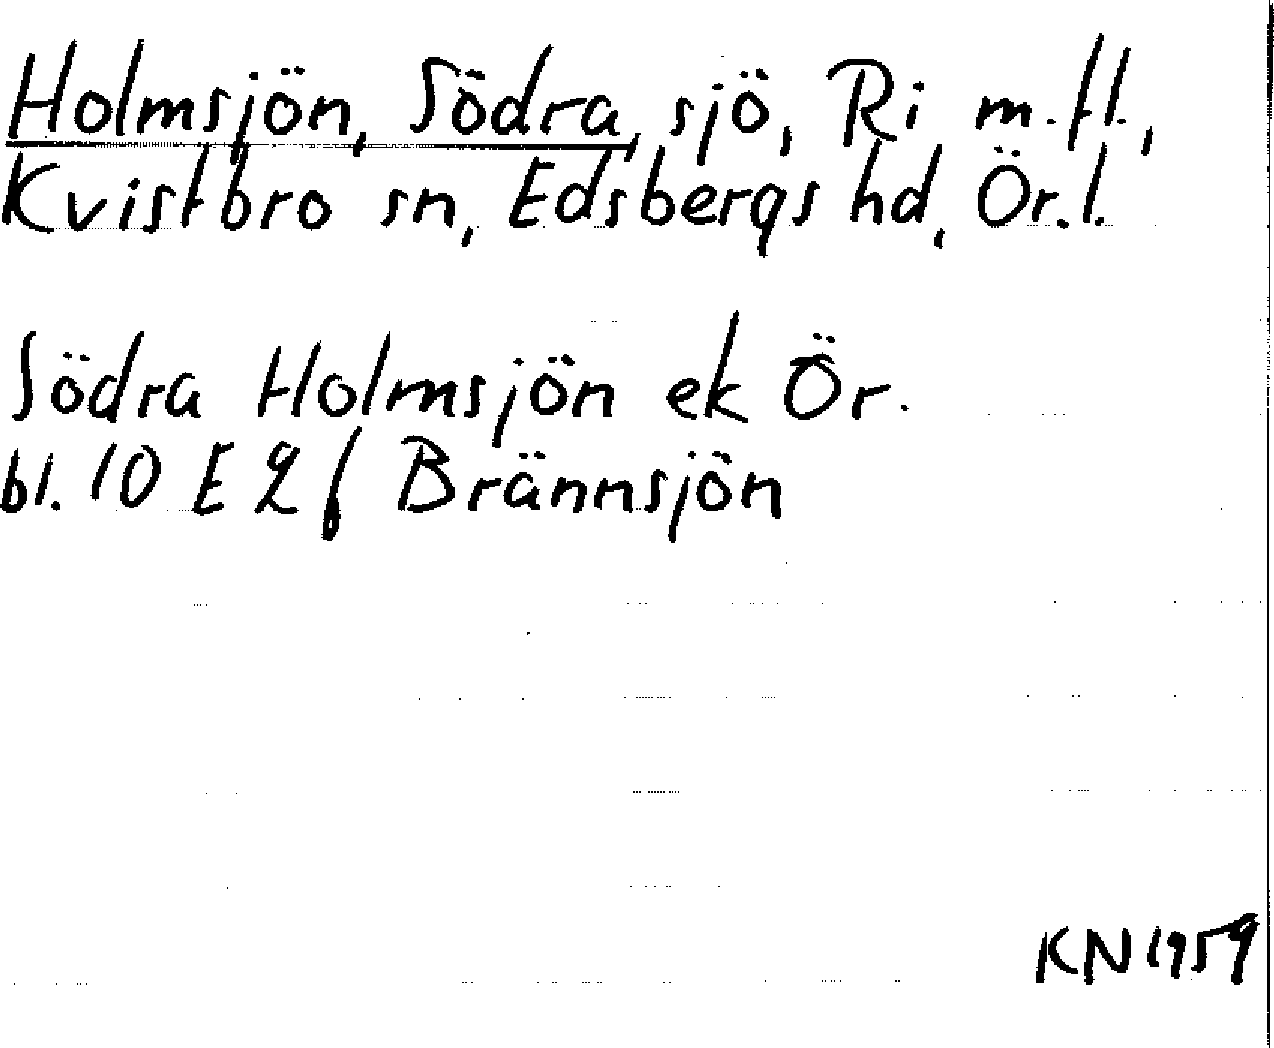 Holmsjön, Södra, sjö, Ri m.fl.,
Kvistbro sn, Edsbergs hd, Ör.l.
Södra Holmsjön ek Ör.
bl. 10 E 2 f Brännsjön
KN 1959